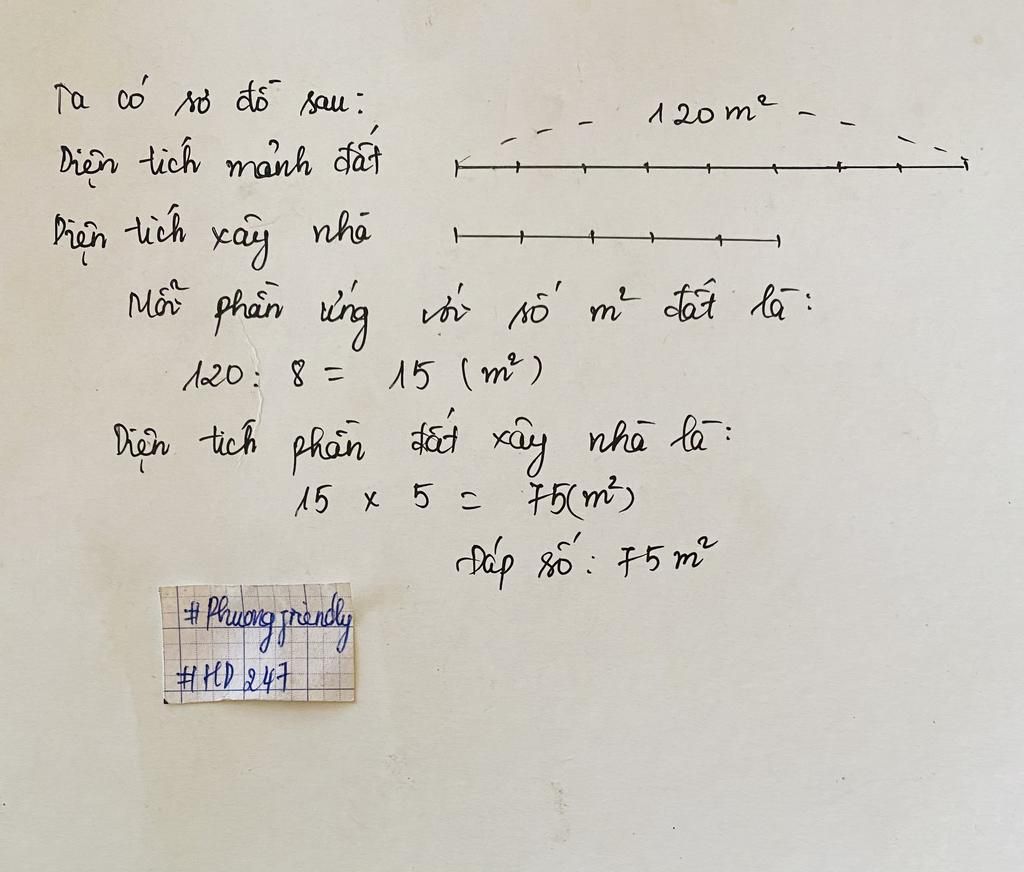 Ta có sơ đồ sau:
120 m²
Diện tích mảnh đất
Diện tích xây nhà
Mỗi phần ứng với số m² đất là:
120 : 8 = 15 (m²)
Diện tích phần đất xây nhà là:
15 x 5 = 75(m²)
Đáp số: 75 m²
#Phuongfriendly
#HD 247